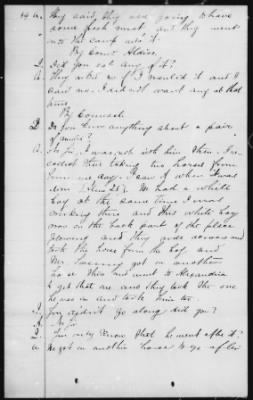 A. They said, they are going to have
some fresh meat and they went
into the camp with it.
By Comr. Aldis.
Q. Did you eat any of it?
A. They asked me if I wanted it and I
said no. I did not want any at that
time
By Counsel.
Q. Do you know anything about a pair
of mules?
A. No Sir. I was not with him then. I re-
collect this taking his horses from
him one day. I saw it when I was
there (June 25). He had a white
boy at the same time I was
working there and this white boy
was on the back part of the place
plowing and they went across and
took the horse from the boy and
Mr. got on another
horse this and went to Alexandria
to get that one and they took the one
he was on and took him too.
Q. You didn't go along did you?
A. No Sir
Q. You only know that he went after it?
A. He got on another horse to go after